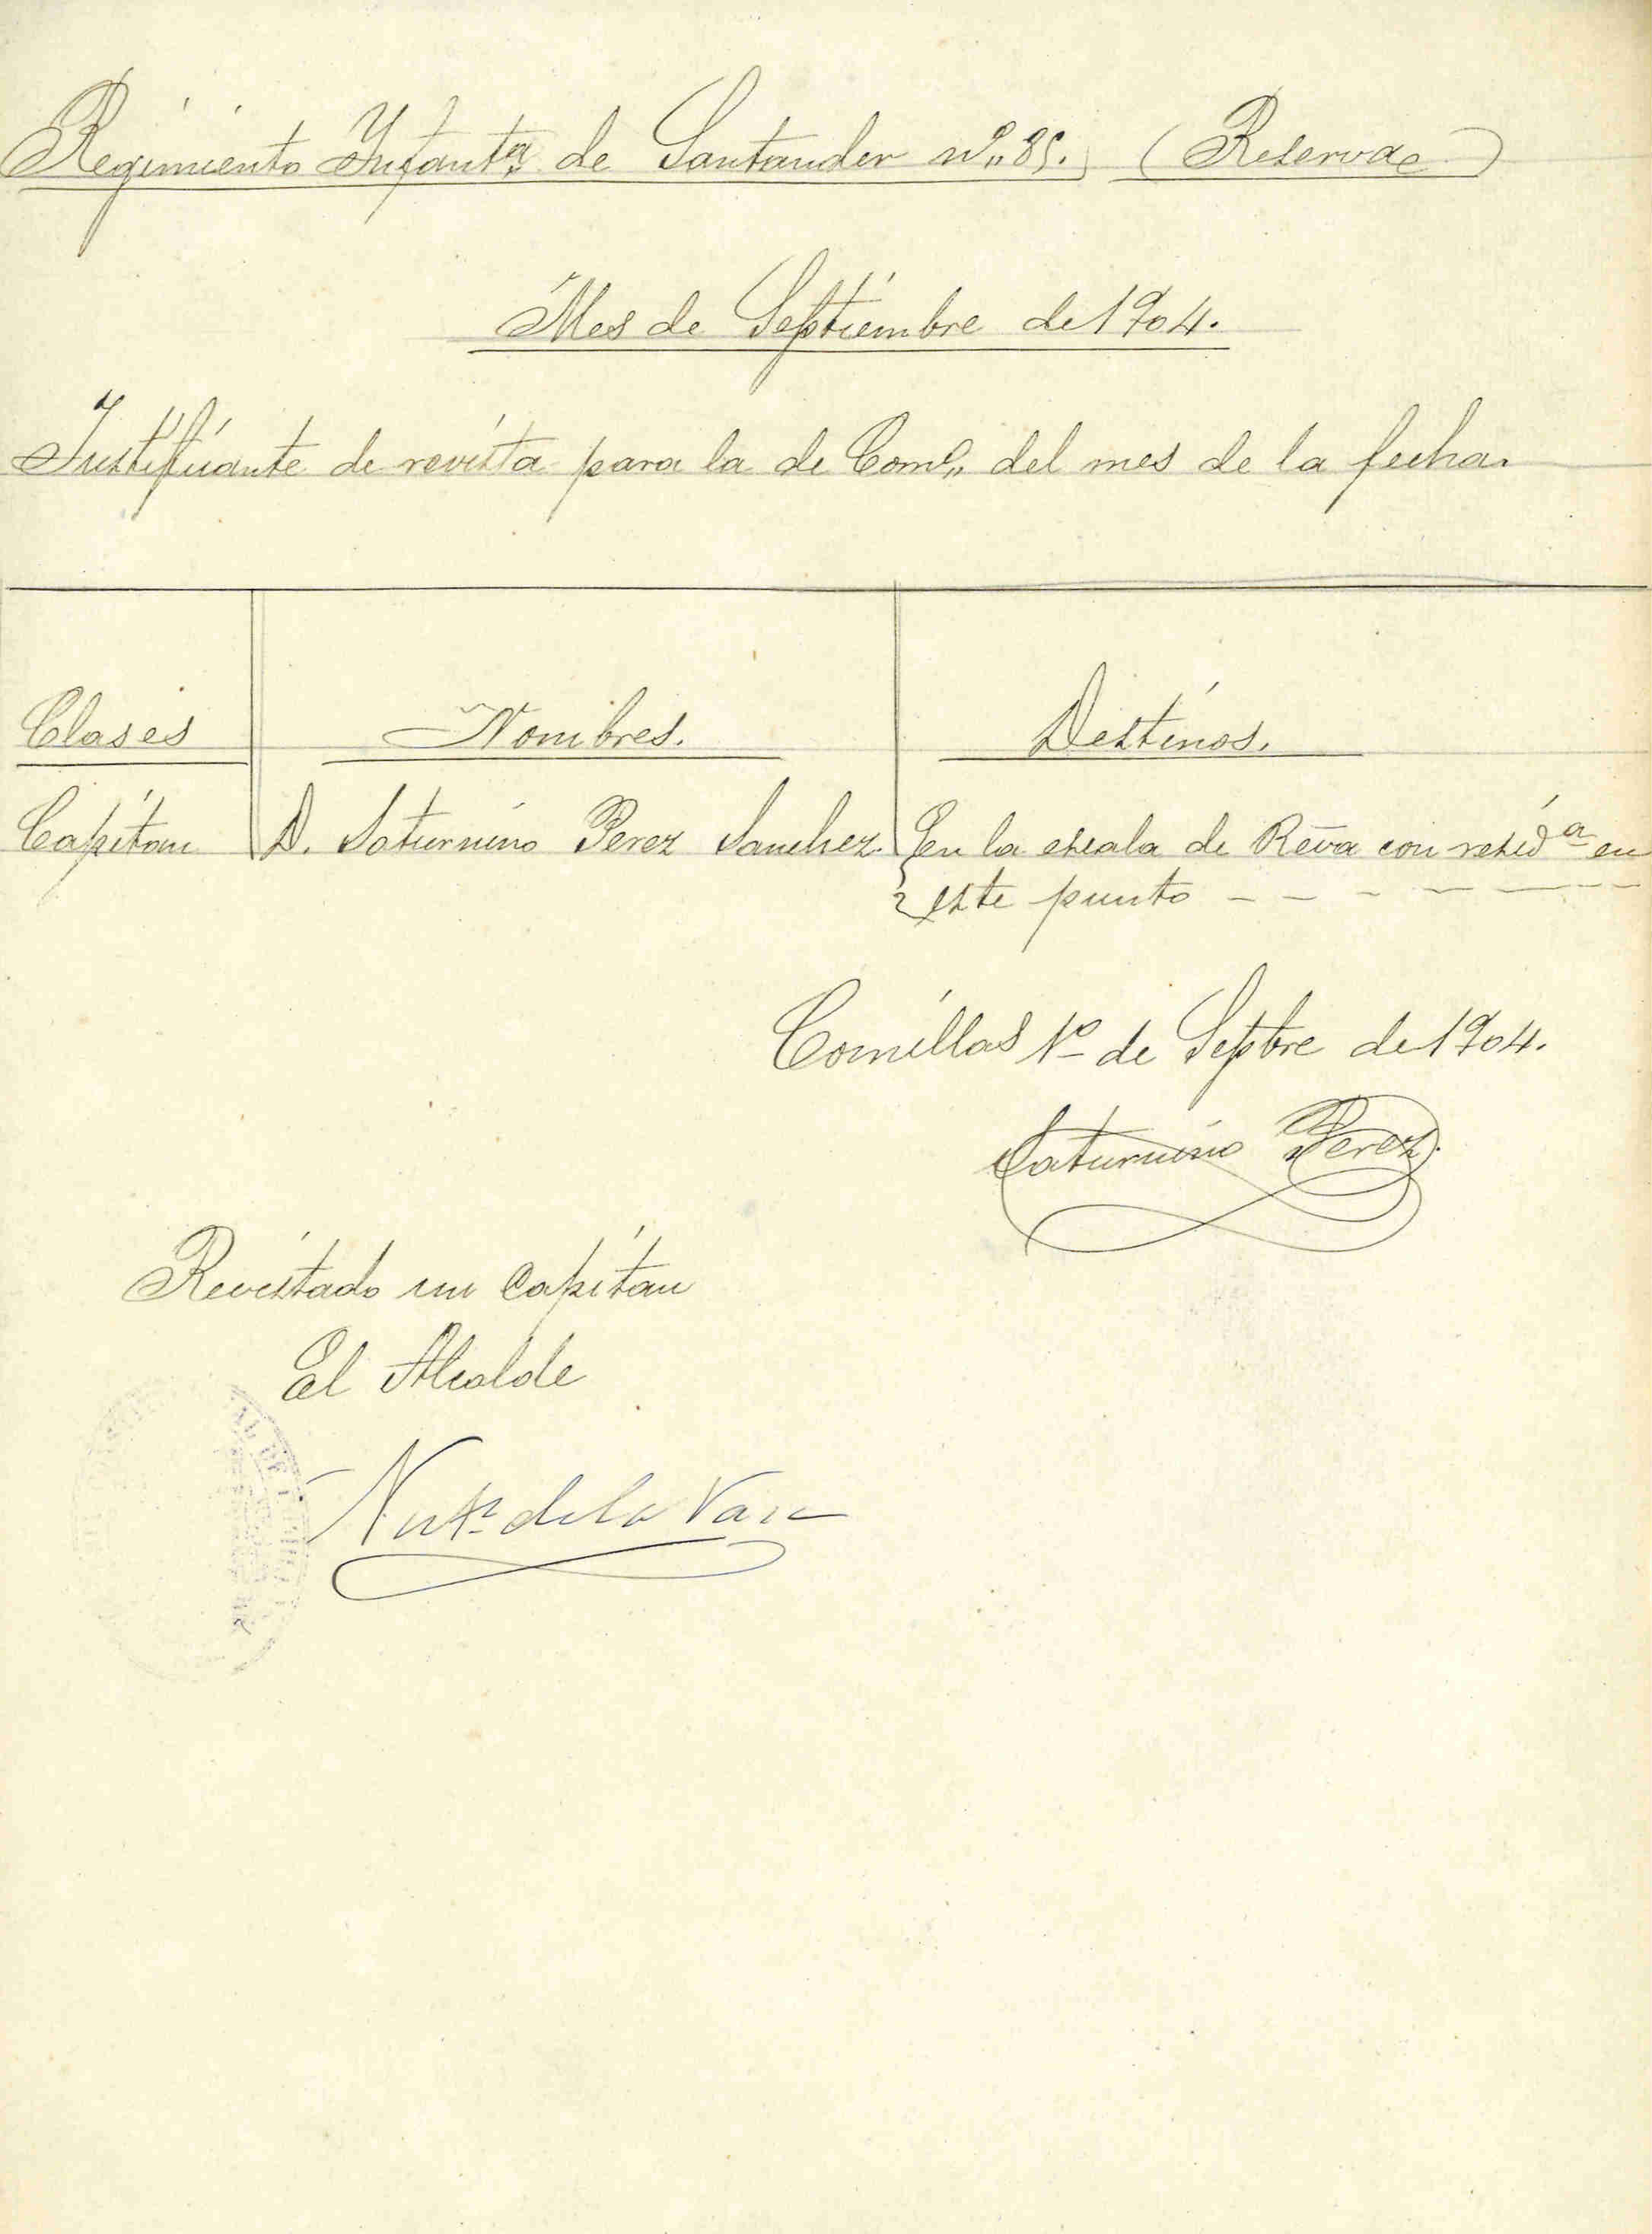 Regimiento Infantª de Santander nº 85. (Reserva)
Mes de Septiembre de 1904.
Justificante de revista para la de Comº del mes de la fecha.
Clases Nombres. Destinos.
Capitan D. Saturnino Perez Sanchez. En la escala de Rēva con residª en
este punto - - - - - -
Comillas 1º de Septbre de 1904.
Saturnino Perez.
Revistado un capitan
El Alcalde
de la